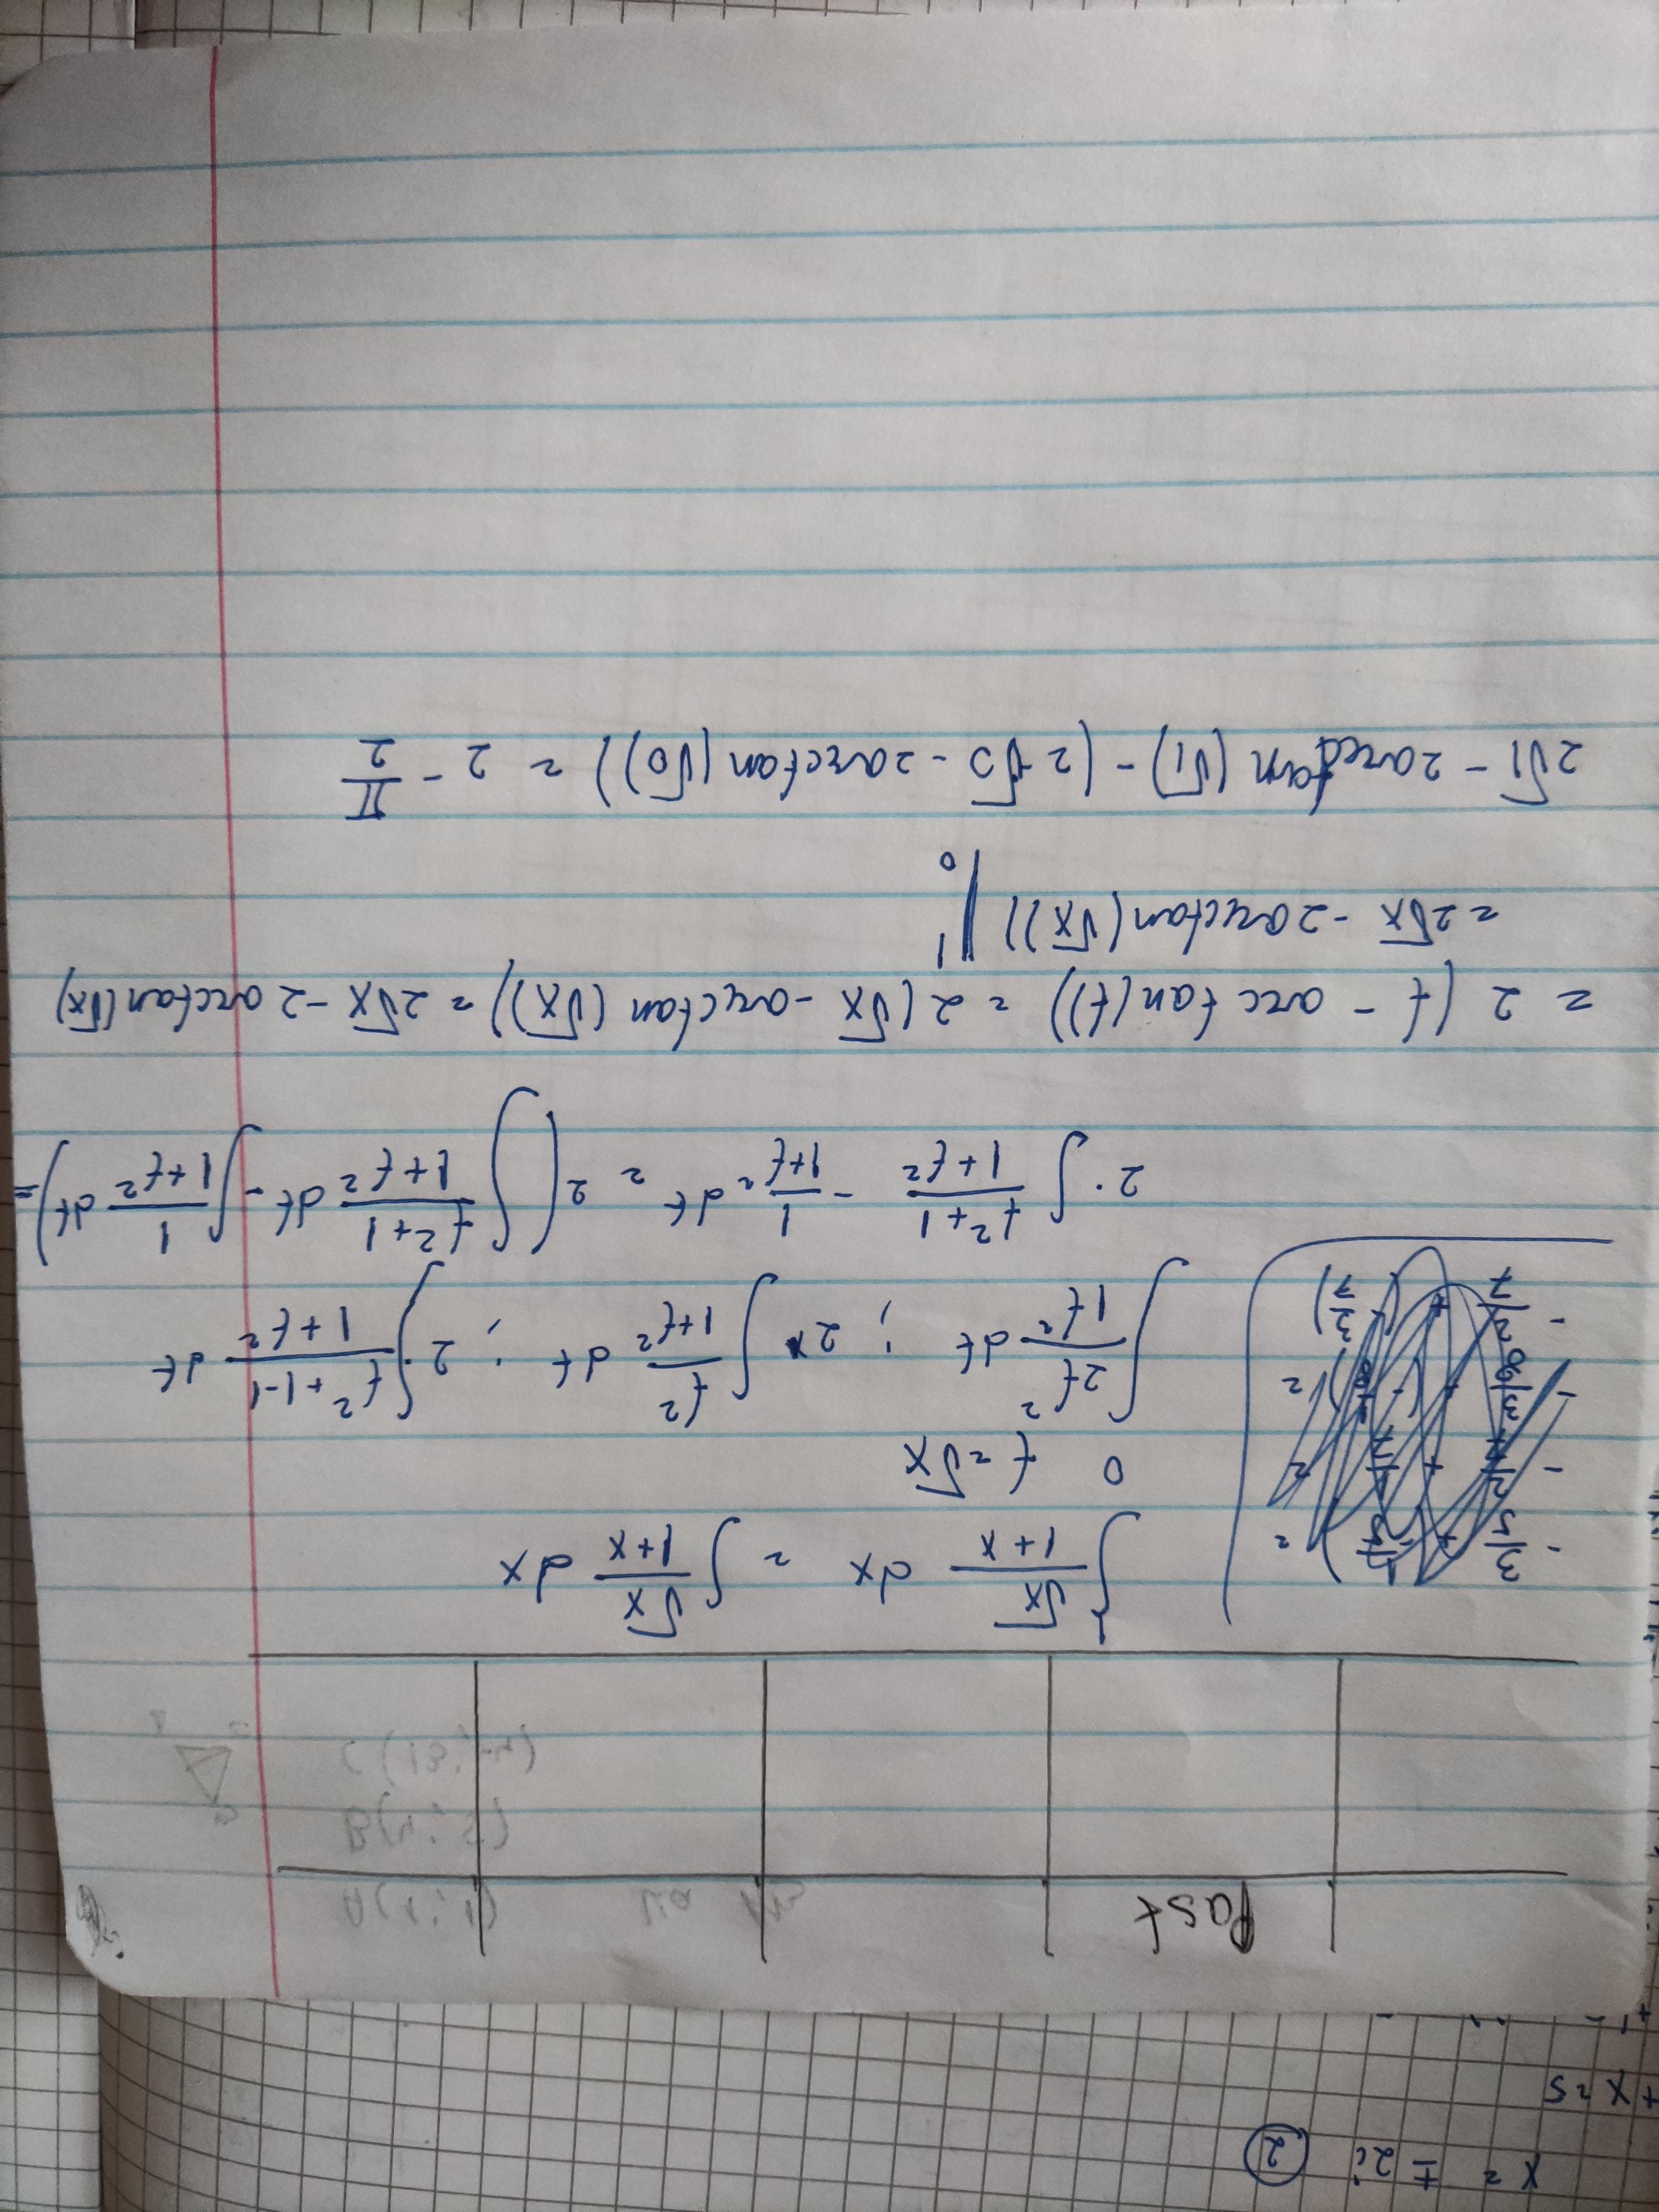 x = ± 2i (2)
+ x = 5
Past
∫₀¹ √x/(1+x) dx = ∫ √x/(1+x) dx
t = √x
∫ 2t²/(1+t²) dt ; 2× ∫ t²/(1+t²) dt ; 2·∫ (t²+1-1)/(1+t²) dt
2·∫ (t²+1)/(1+t²) - 1/(1+t²) dt = 2(∫ (t²+1)/(1+t²) dt - ∫ 1/(1+t²) dt) =
= 2 (t - arctan(t)) = 2 (√x - arctan(√x)) = 2√x - 2 arctan(√x)
= 2√x - 2 arctan(√x)) |₀¹
2√1 - 2 arctan(√1) - (2√0 - 2 arctan(√0)) = 2 - π/2